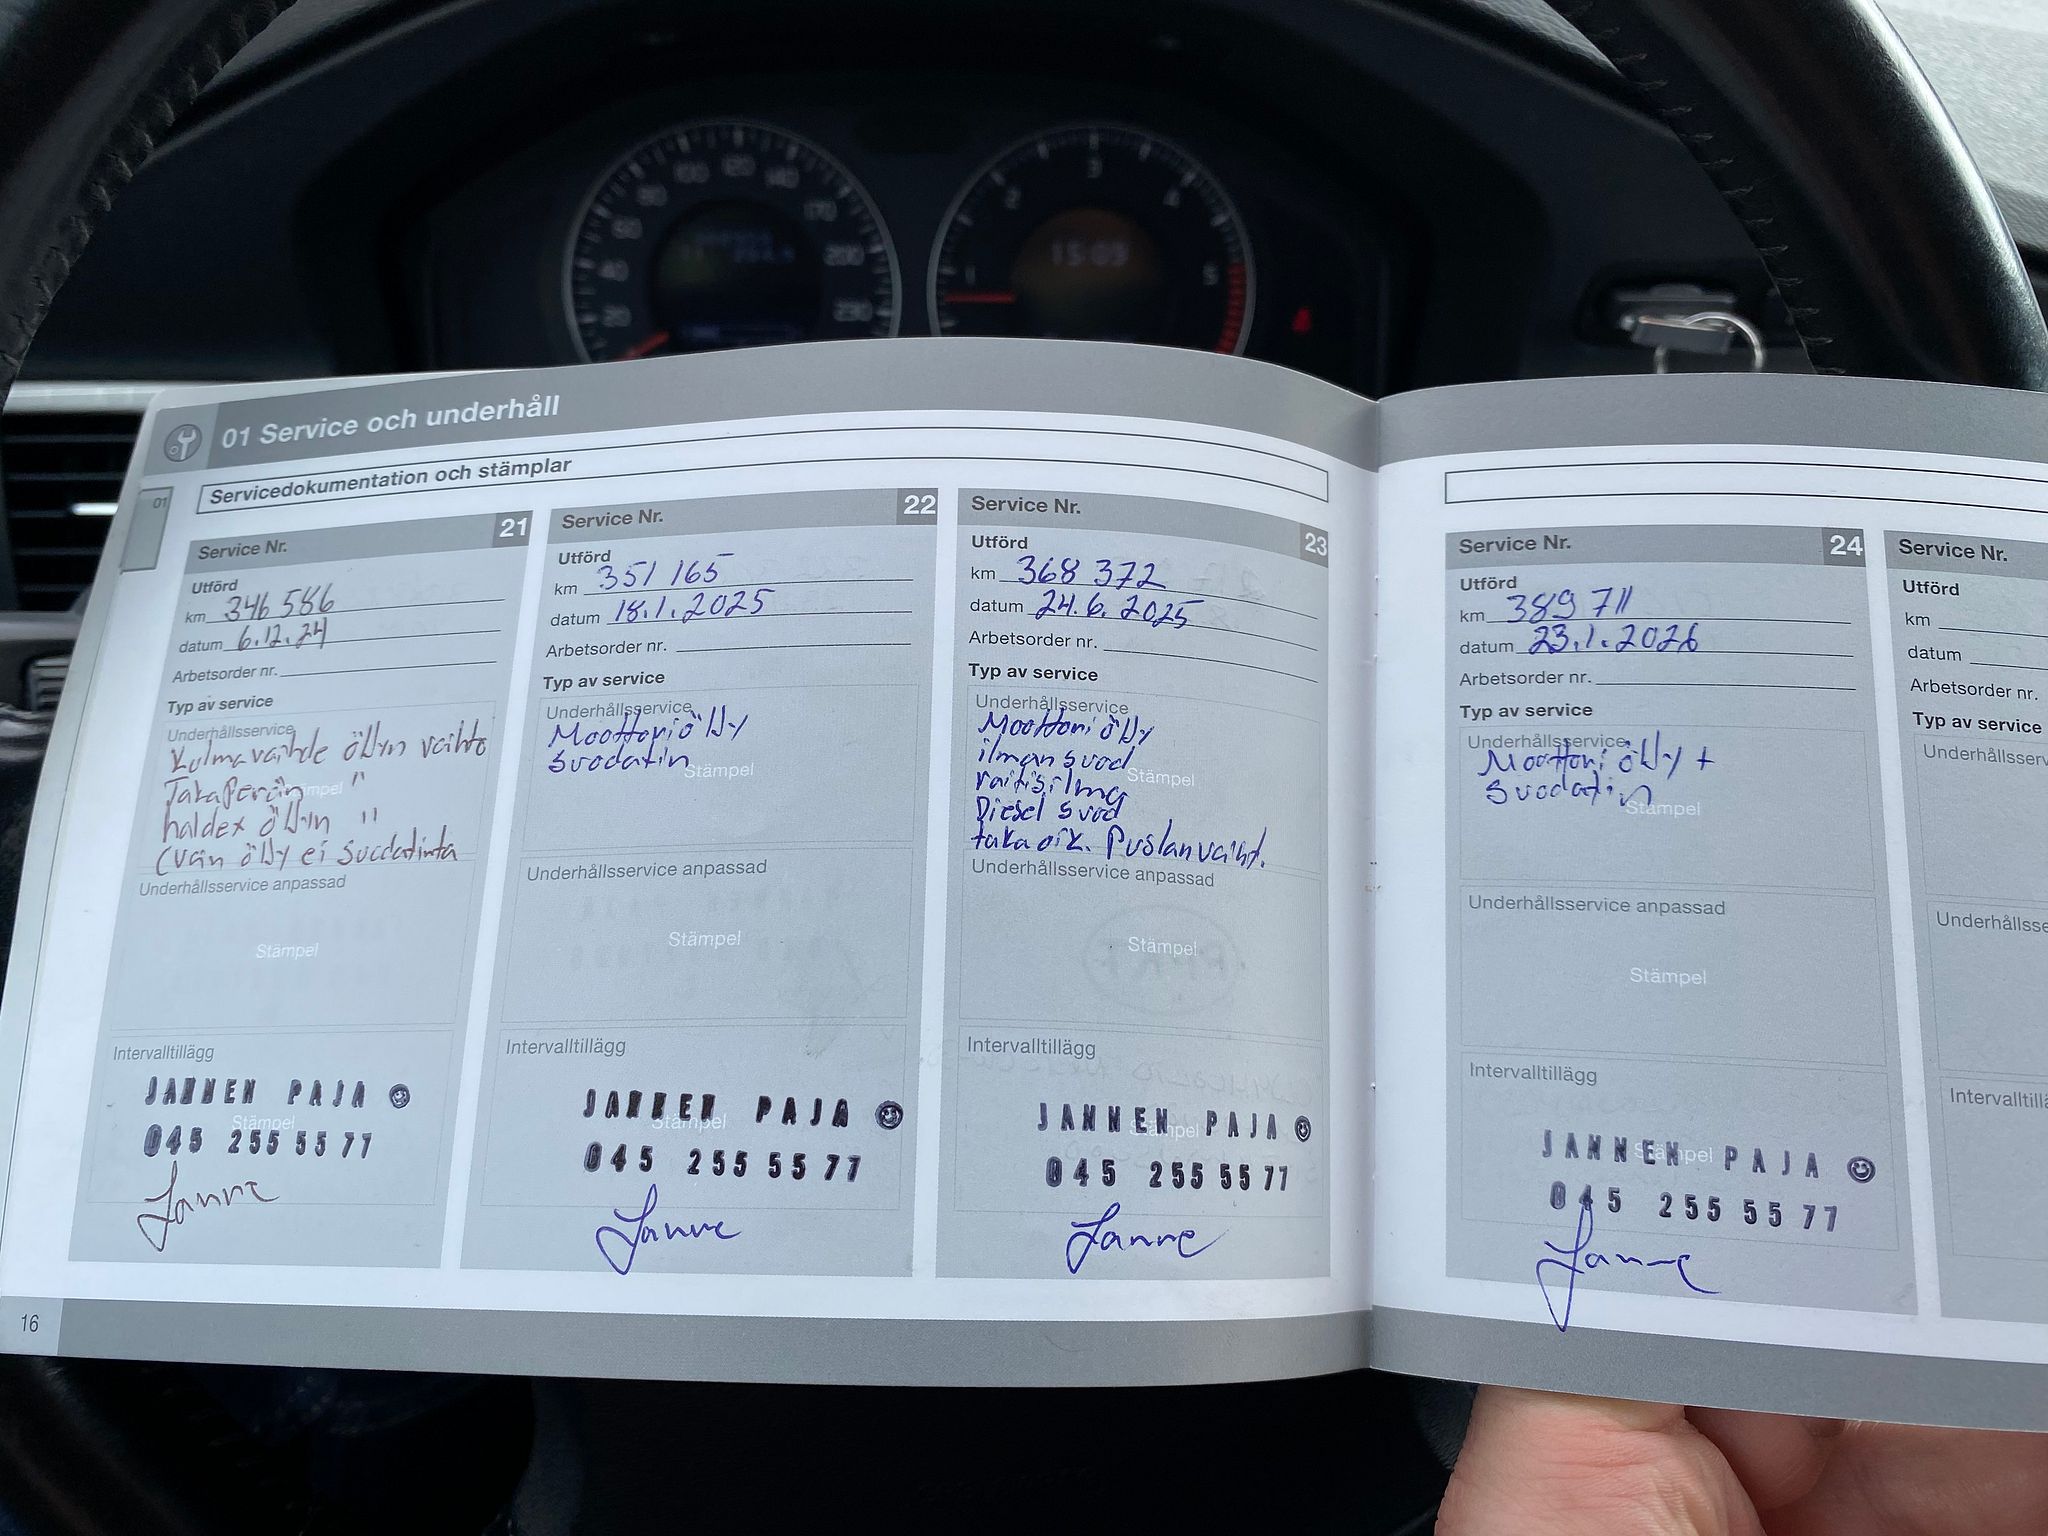 01 Service och underhåll
Servicedokumentation och stämplar
01
Service Nr. 21
Utförd
km 346 586
datum 6.12.24
Arbetsorder nr.
Typ av service
Underhållsservice
Kulmavaihde öljyn vaihto
Takaperän "
Stämpel
haldex öljyn "
(vain öljy ei suodatinta
Underhållsservice anpassad
Stämpel
Intervalltillägg
JANNEN PAJA
Stämpel
045 255 55 77
Janne
Service Nr. 22
Utförd
km 351 165
datum 18.1.2025
Arbetsorder nr.
Typ av service
Underhållsservice
Moottoriöljy
suodatin
Stämpel
Underhållsservice anpassad
Stämpel
Intervalltillägg
JANNEN PAJA
Stämpel
045 255 55 77
Janne
Service Nr. 23
Utförd
km 368 372
datum 24.6.2025
Arbetsorder nr.
Typ av service
Underhållsservice
Moottori öljy
ilman suod
Stämpel
raitisilma
Diesel suod
taka oik. Puslan vaiht.
Underhållsservice anpassad
Stämpel
Intervalltillägg
JANNEN PAJA
Stämpel
045 255 55 77
Janne
16
Service Nr. 24
Utförd
km 389 711
datum 23.1.2026
Arbetsorder nr.
Typ av service
Underhållsservice
Moottori öljy +
suodatin
Stämpel
Underhållsservice anpassad
Stämpel
Intervalltillägg
JANNEN PAJA
Stämpel
045 255 55 77
Janne
Service Nr.
Utförd
km
datum
Arbetsorder nr.
Typ av service
20
40
60
80
100
120
140
170
200
230
1
2
3
4
5
15:09